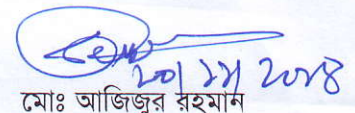 ২০/১১/২০১৪
মোঃ আজিজুর রহমান